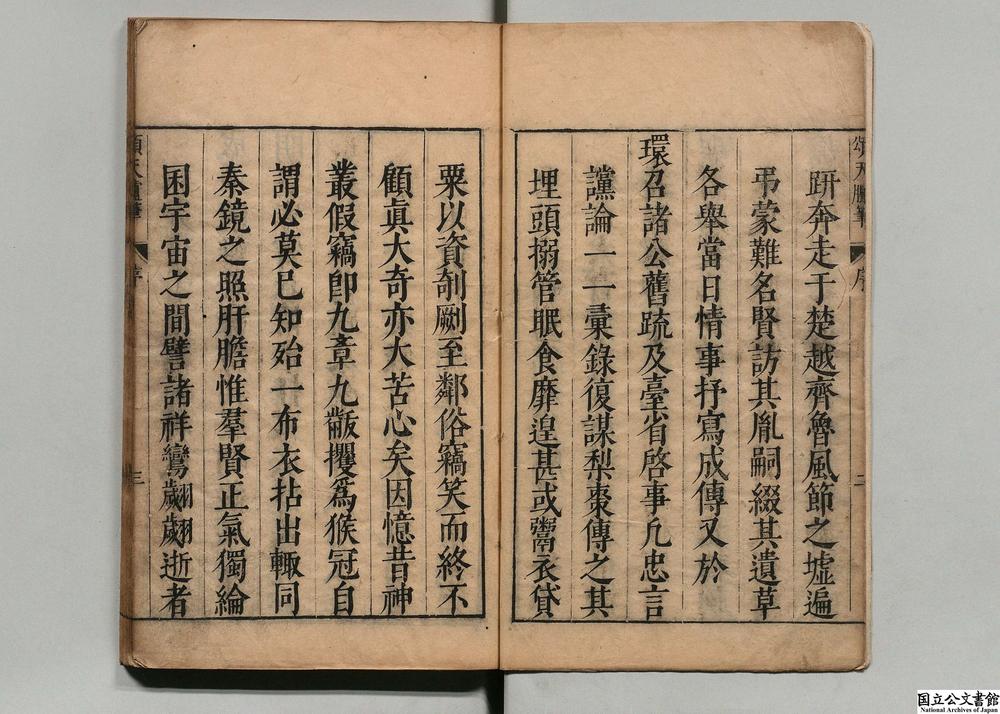 頌天臚筆
序
三
趼奔走于楚越齊魯風節之墟遍
弔蒙難名賢訪其胤嗣綴其遺草
各舉當日情事抒寫成傳又於
環召諸公舊疏及臺省啓事凡忠言
讜論一一彙錄復謀梨棗傳之其
埋頭搦管眠食靡遑甚或鬻衣貸
粟以資剞劂至鄰俗竊笑而終不
顧眞大奇亦大苦心矣因憶昔神
叢假竊卽九章九黻攫爲猴冠自
謂必莫巳知殆一布衣拈出輙同
秦鏡之照肝膽惟羣賢正氣獨綸
囷宇宙之間譬諸祥鸞翽翽逝者
頌天臚筆
序
三
国立公文書館
National Archives of Japan